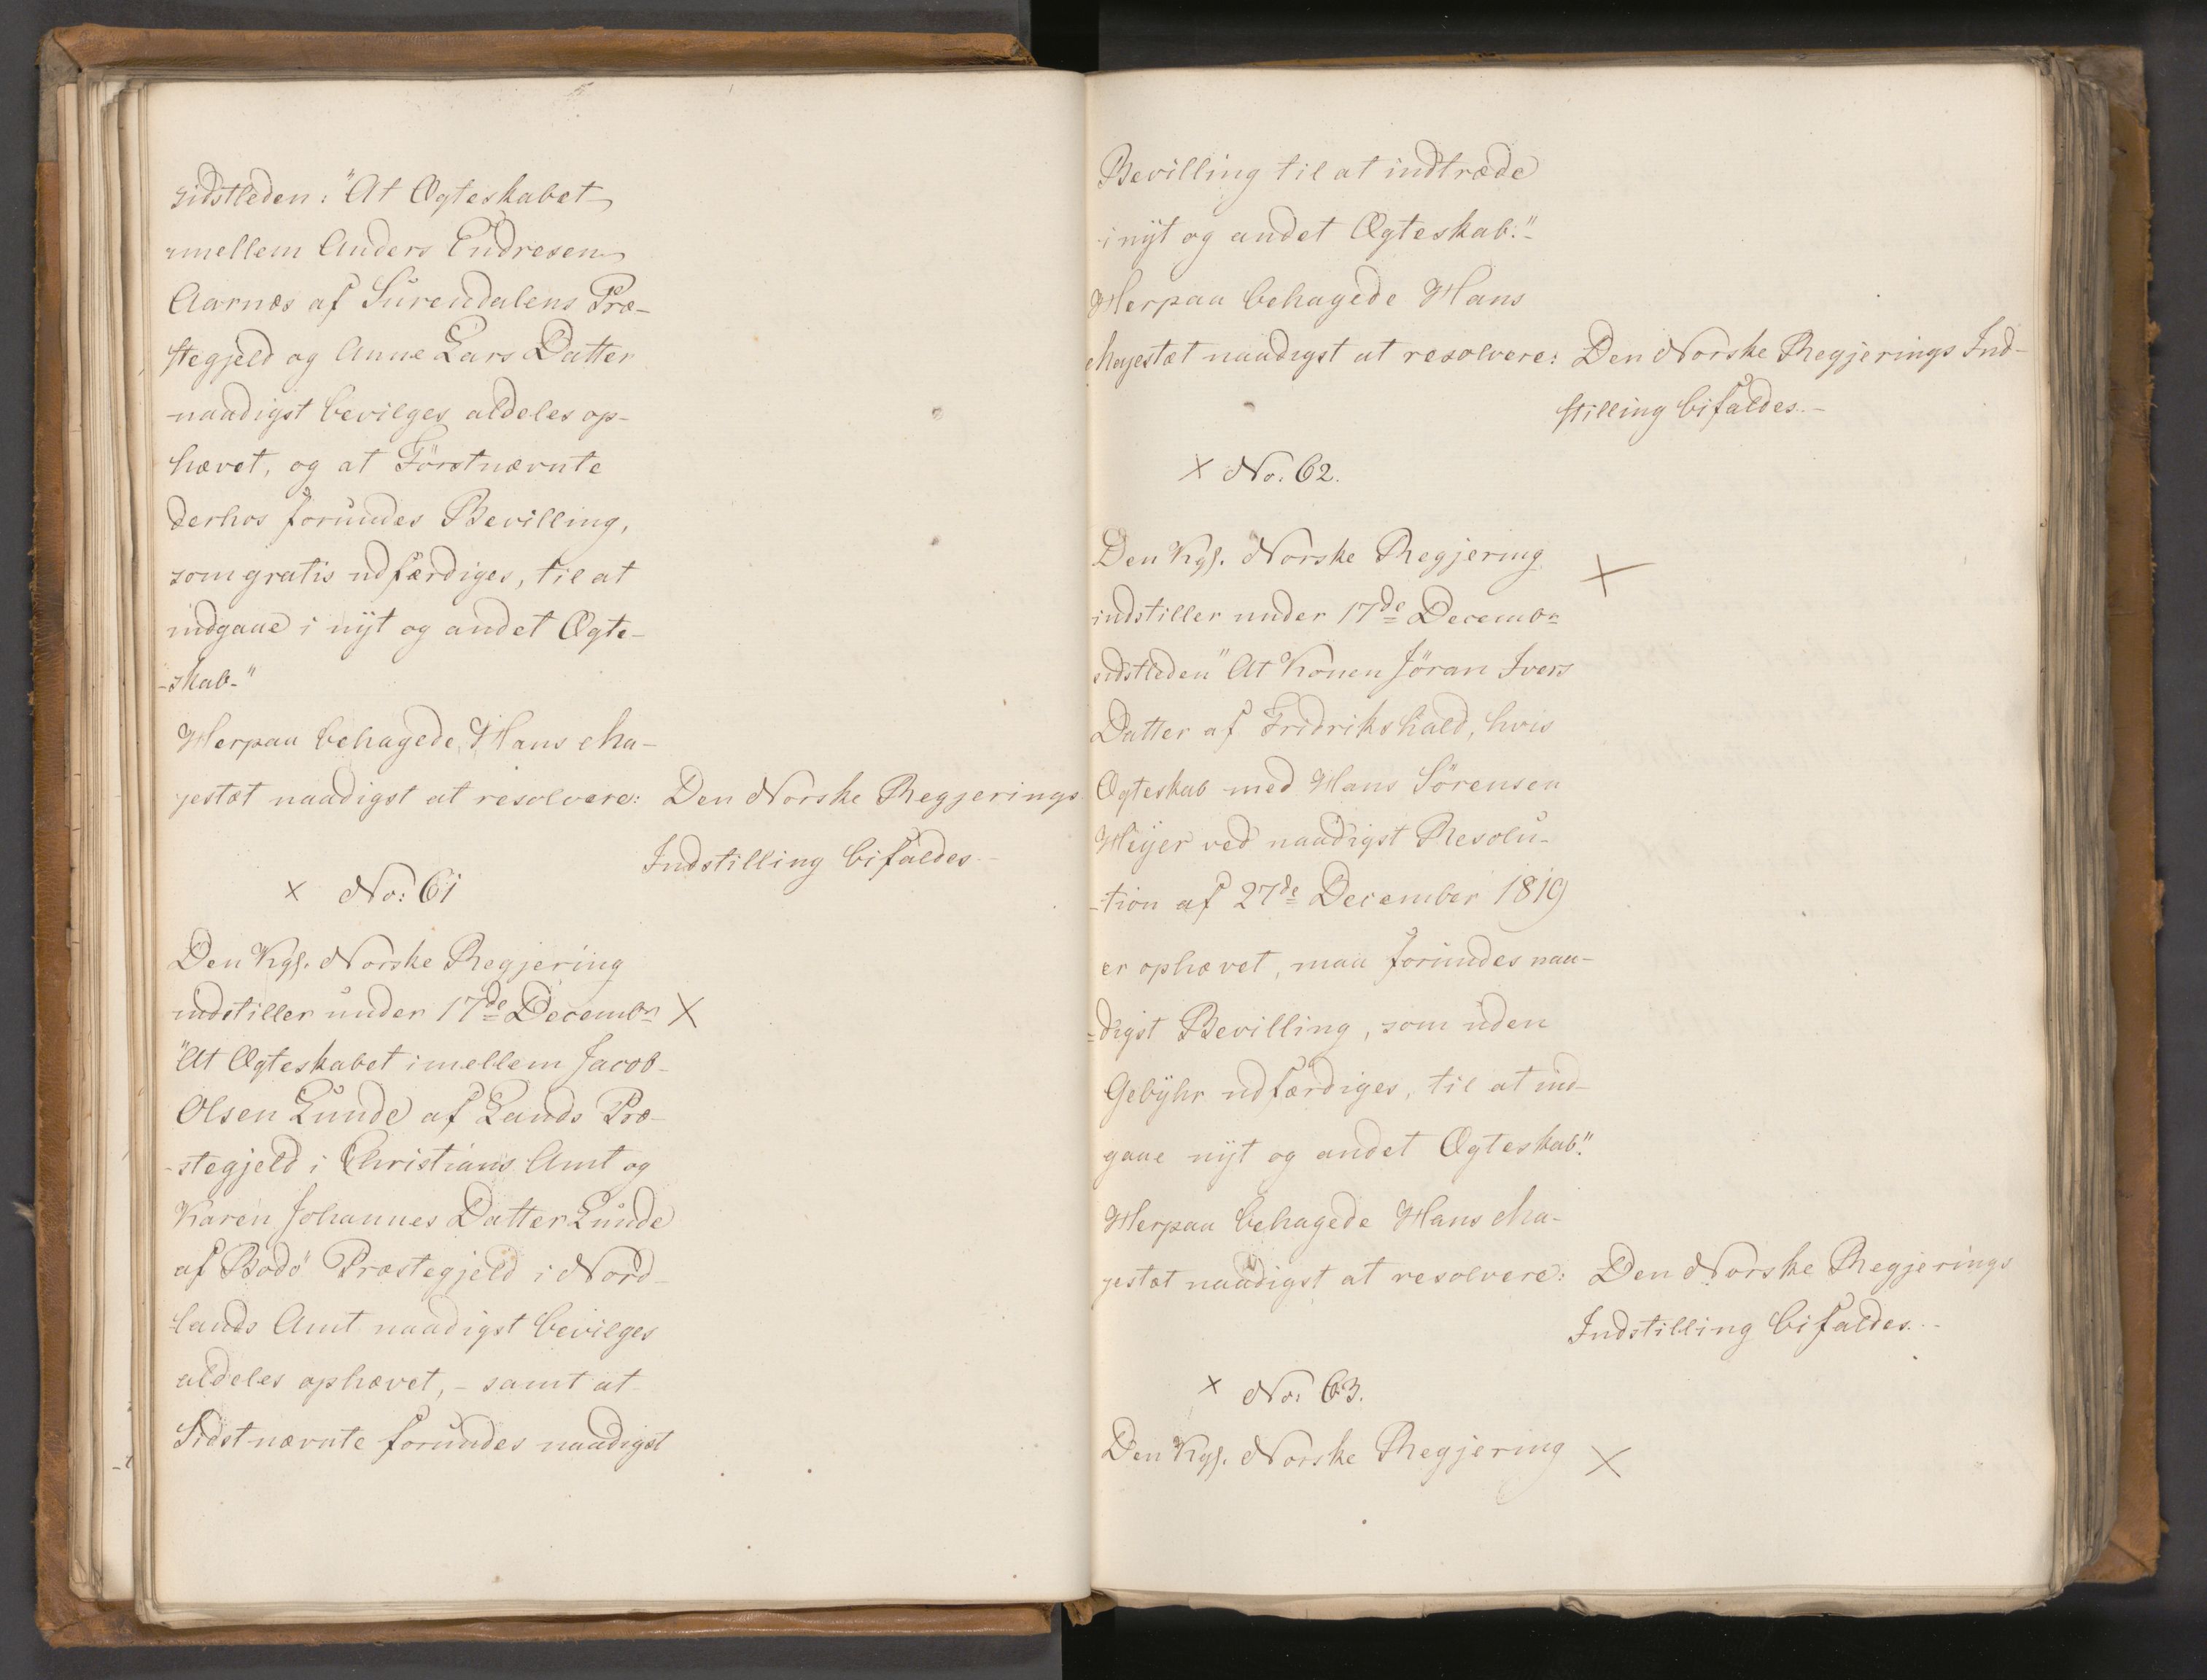 sidstleden: "At Ægteskabet
imellem Anders Endresen
Aarnæs af Surendalens Præ-
stegjeld og Anne Lars Datter
naadigst bevilges aldeles op-
hævet, og at Förstnævnte
derhos forundes Bevilling,
som gratis udfærdiges, til at
indgaae i nÿt og andet Ægte-
-skab."
Herpaa behagede Hans Ma-
jestæt naadigst at resolvere: Den Norske Regjerings
Indstilling bifaldes.-
x No: 61
Den Kgl. Norske Regjering
indstiller under 17de Decembr X
"At Ægteskabet imellem Jacob
Olsen Lunde af Lands Præ-
-stegjeld i Christians Amt og
Karen Johannes Datter Lunde
af Bodö Præstegjeld i Nord-
lands Amt naadigst bevilges
aldeles ophævet, - samt at
Sidstnævnte forundes naadigst
Bevilling til at indtræde
i nÿt og andet Ægteskab."-
Herpaa behagede Hans
Majestæt naadigst at resolvere: Den Norske Regjerings Ind-
stilling bifaldes.-
x No. 62.
Den Kgl. Norske Regjering X
indstiller under 17de Decembr
sidstleden "At Konen Jöran Ivers
Datter af Fridrikshald, hvis
Ægteskab med Hans Sörensen
Heÿer ved naadigst Resolu-
-tion af 27de December 1819
er ophævet, maa forundes naa-
-digst Bevilling, som uden
Gebÿhr udfærdiges, til at ind-
gaae nÿt og andet Ægteskab."
Herpaa behagede Hans Ma-
jestæt naadigst at resolvere: Den Norske Regjerings
Indstilling bifaldes.-
x No: 63.
Den Kgl. Norske Regjering X